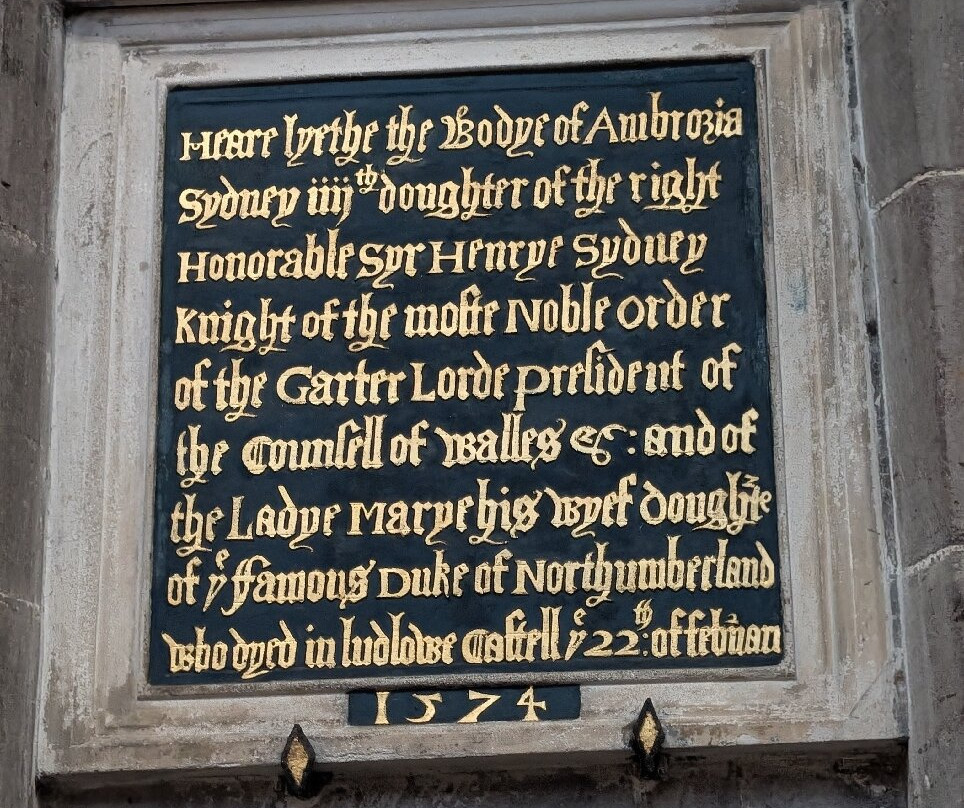 Heare lyethe the Bodye of Ambrozia
Sydney iiijth doughter of the right
Honorable Syr Henrye Sydney
Knight of the moſte Noble order
of the Garter Lorde preſident of
the Counſell of walles &c: and of
the Ladye Marye his wyef doughte
of ye ffamous Duke of Northumberland
who dyed in ludlowe Caſtell ye 22th: of februari
1574